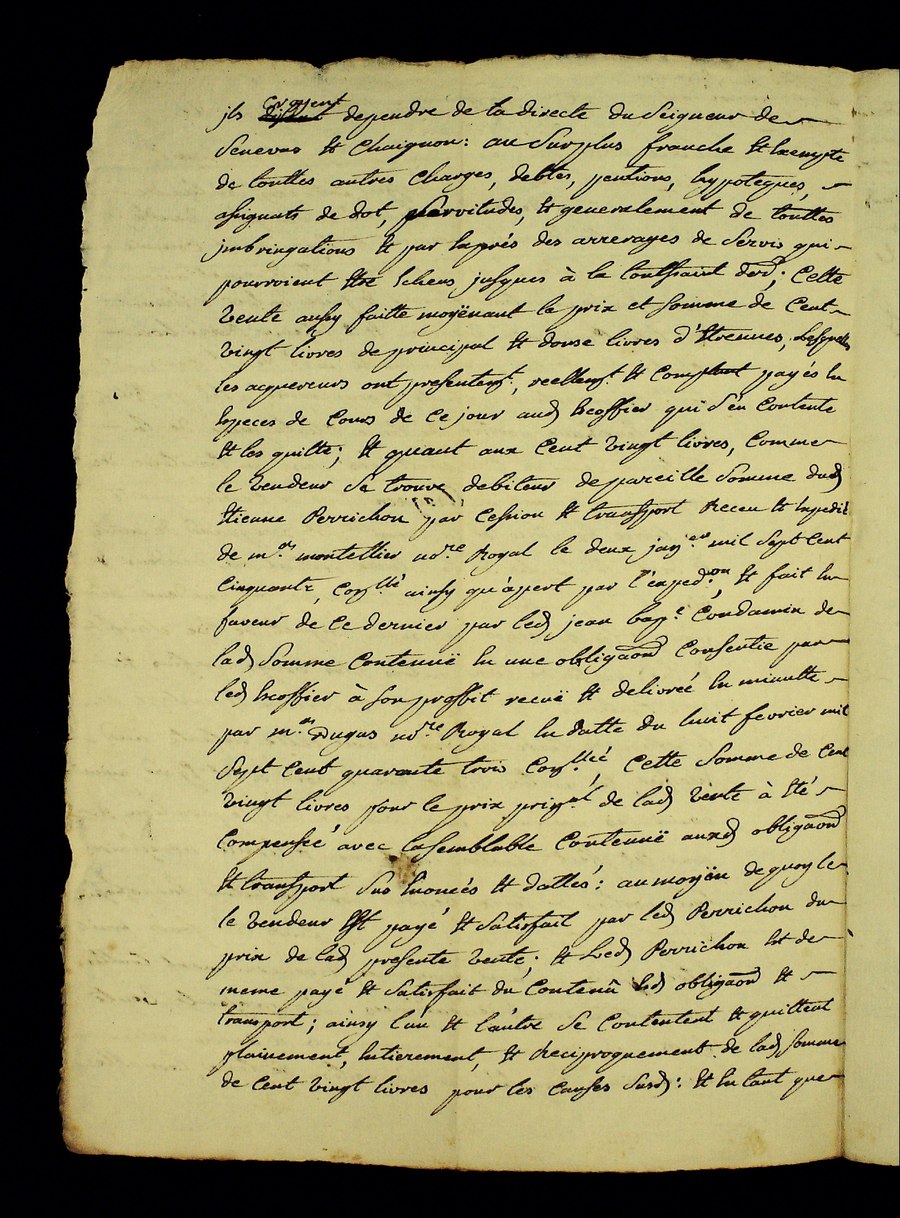 croyent
ils disent dependre de la directe du Seigneur de
Senevas et Chaignon: au surplus franche et exempte
de touttes autres charges, debtes, pentions, hypoteques,
assignats de dot, servitudes, et generalement de touttes
imbringations et par exprés des arrerages de servis qui
pourroient être échens jusques à la toussaint der.; Cette
vente aussy faitte moyënant le prix et somme de Cent
vingt livres de principal et douse livres d'étrennes, lesquelles
les acquereurs ont presentemt., reellemt. et comptant payés en
especes de cours de ce jour aud escoffier qui s'en contente
et les quitte; et quant aux Cent vingt livres, comme
le vendeur se trouve debiteur de pareille somme dud
étienne Perrichon par cession et transport receu et expedié
de me. montellier nore. Royal le deux janer. mil sept cent
cinquante, conllé ainsy qu'apert par l'expedon, et fait en
faveur de ce dernier par led jean bapte. Condamin de
lad somme contenuë en une obligaon consentie par
led escoffier à son proffit recuë et delivreé en minutte
par me. Dugas nore. Royal en datte du huit fevrier mil
sept cent quarante trois conllée. Cette somme de Cent
vingt livres pour le prix prinal de lad vente à été
compensée avec la semblable contenuë auxd obligaon
et transport sus énoncés et dattés: au moyën de quoy le
le vendeur est payé et satisfait par led Perrichon du
prix de lad presente vente; et led Perrichon est de
meme payé et satisfait du contenû esd obligaon et
transport; ainsy l'un et l'autre se contentent et quittent
plainement, entierement, et reciproquement de lad somme
de cent vingt livres pour les causes susd: et en tant que